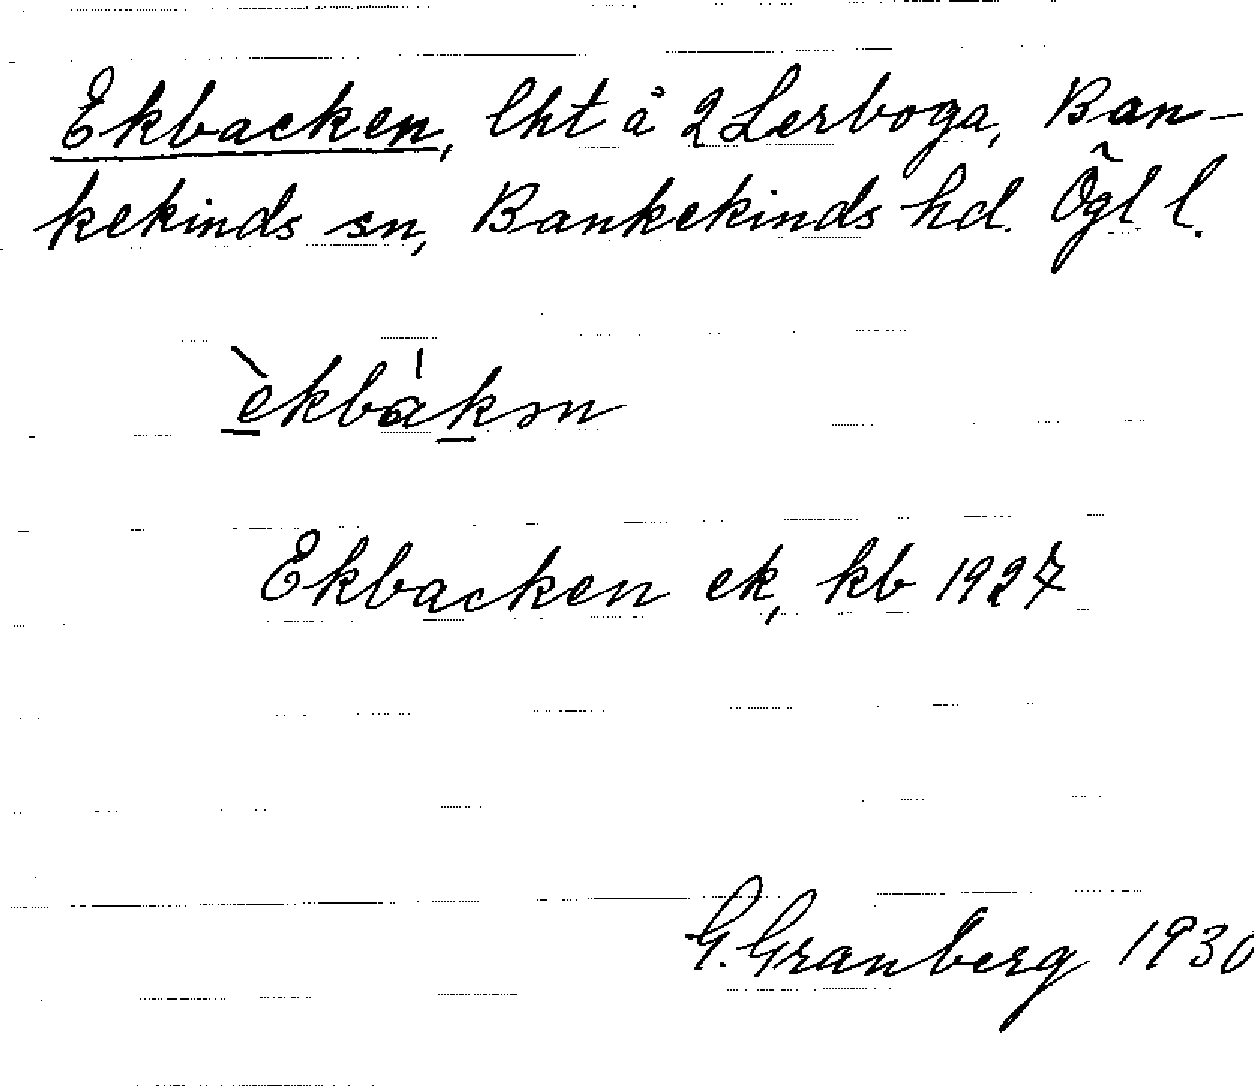 Ekbacken, lht å 2 Lerboga, Ban-
kekinds sn, Bankekinds hd. Ögl l.
èkbàkən
Ekbacken ek, kb 1927
G. Granberg 1930